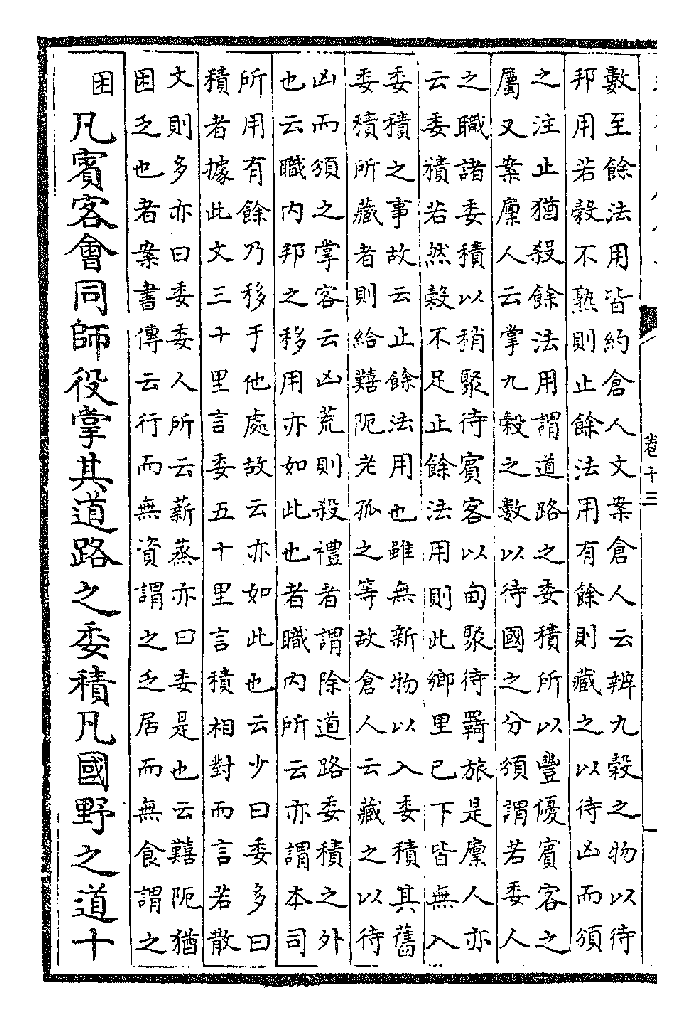 數至餘法用皆約倉人文案倉人云辨九穀之物以待
邦用若穀不熟則止餘法用有餘則藏之以待凶而頒
之注止猶殺餘法用謂道路之委積所以豐優賓客之
屬又案廩人云掌九穀之數以待國之分頒謂若委人
之職諸委積以稍聚待賓客以甸聚待羇旅是廩人亦
云委積若然穀不足止餘法用則此鄉里已下皆無入
委積之事故云止餘法用也雖無新物以入委積其舊
委積所藏者則給囏阨老孤之等故倉人云藏之以待
凶而頒之掌客云凶荒則殺禮者謂除道路委積之外
也云職內邦之移用亦如此也者職內所云亦謂本司
所用有餘乃移于他處故云亦如此也云少曰委多曰
積者據此文三十里言委五十里言積相對而言若散
文則多亦曰委委人所云薪蒸亦曰委是也云囏阨猶
困乏也者案書傳云行而無資謂之乏居而無食謂之
困 凡賓客會同師役掌其道路之委積凡國野之道十
卷十三